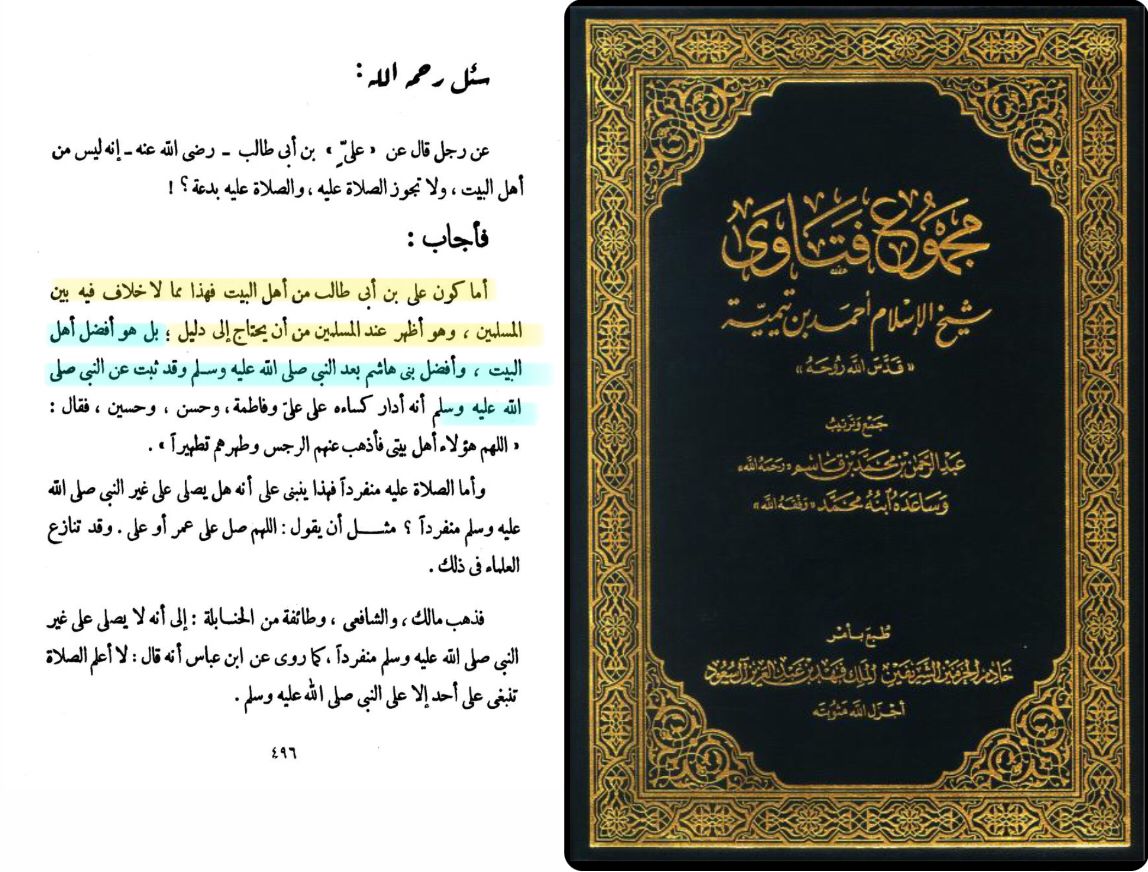 سئل رحمه الله :
عن رجل قال عن « علىّ » بن أبى طالب ــ رضى الله عنه ــ إنه ليس من
أهل البيت ، ولا تجوز الصلاة عليه ، والصلاة عليه بدعة ؟ !
فأجاب :
أما كون على بن أبى طالب من أهل البيت فهذا مما لا خلاف فيه بين
المسلمين ، وهو أظهر عند المسلمين من أن يحتاج إلى دليل ؛ بل هو أفضل أهل
البيت ، وأفضل بنى هاشم بعد النبى صلى الله عليه وسلم وقد ثبت عن النبى صلى
الله عليه وسلم أنه أدار كساءه على علىّ وفاطمة ، وحسن ، وحسين ، فقال :
« اللهم هؤلاء أهل بيتى فأذهب عنهم الرجس وطهرهم تطهيراً » .
وأما الصلاة عليه منفرداً فهذا ينبنى على أنه هل يصلى على غير النبى صلى الله
عليه وسلم منفرداً ؟ مثل أن يقول : اللهم صل على عمر أو على . وقد تنازع
العلماء فى ذلك .
فذهب مالك ، والشافعى ، وطائفة من الحنابلة : إلى أنه لا يصلى على غير
النبى صلى الله عليه وسلم منفرداً ، كما روى عن ابن عباس أنه قال : لا أعلم الصلاة
تنبغى على أحد إلا على النبى صلى الله عليه وسلم .
٤٩٦
مجموع فتاوى
شيخ الإسلام أحمد بن تيمية
« قدس الله روحه »
جمع وترتيب
عبد الرحمن بن محمد بن قاسم « رحمه الله »
وساعده ابنه محمد « وفقه الله »
طبع بأمر
خادم الحرمين الشريفين الملك فهد بن عبد العزيز آل سعود
أجزل الله مثوبته